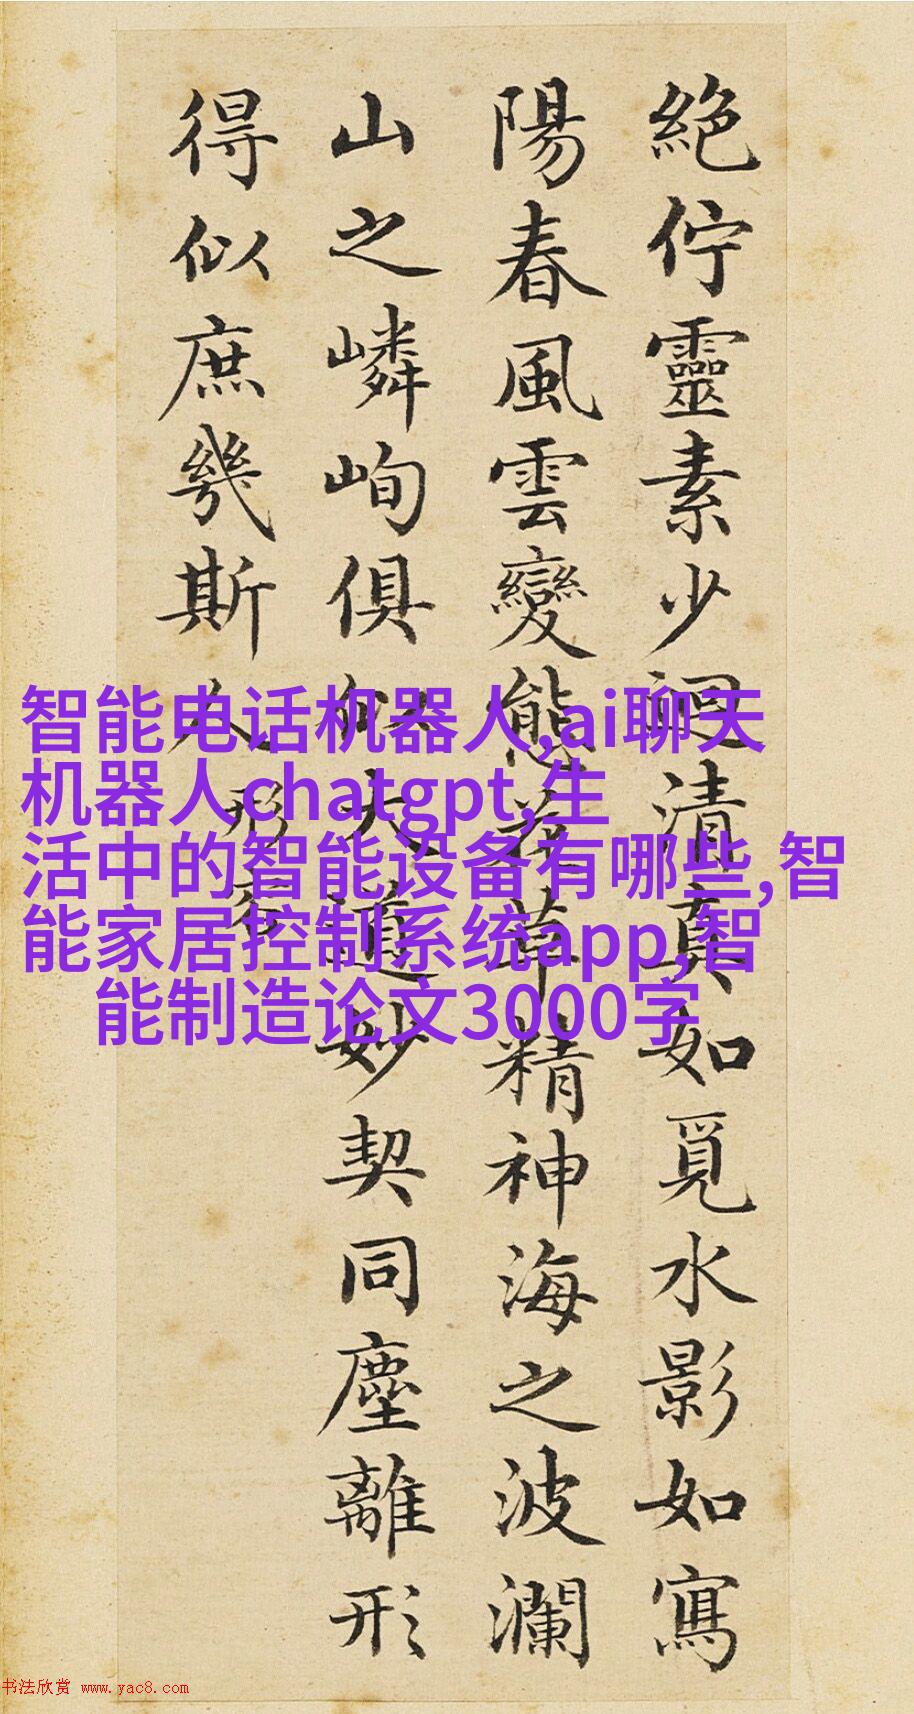 絕佇靈素少迴清真如覓水影如寫
陽春風雲變態花草精神海之波瀾
山之嶙峋俱似大道妙契同塵離形
得似庶幾斯人
形容
智能电话机器人,ai聊天
机器人chatgpt,生
活中的智能设备有哪些,智
能家居控制系统app,智
能制造论文3000字
书法欣赏 www.yac8.com